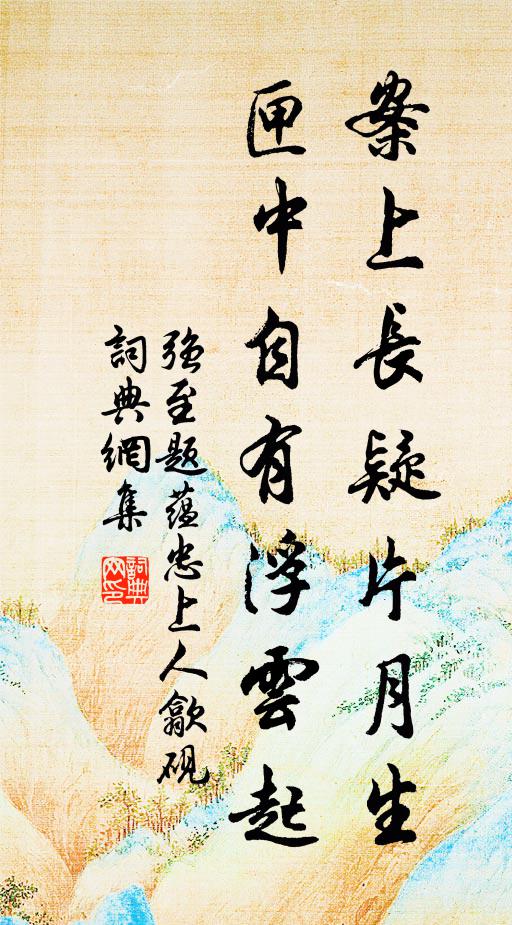 案上長疑片月生
匣中自有浮雲起
強至題蘊忠上人歙硯
詞典網集
詞典網印